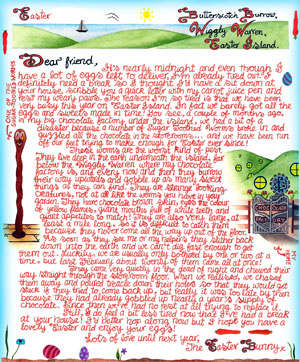 Easter
Butterscotch Burrow,
Wiggly Warren,
Easter Island.
Dear friend,
It's nearly midnight and even though I
have a lot of eggs left to deliver, I'm already tired out! I
definitely need a break, so I thought I'd have a sit down at
your house, scribble you a quick letter with my carrot juice pen and
rest my weary paws. The reason I'm so tired is that we have been
very busy this year on Easter Island. In fact we barely got all the
eggs and sweets made in time! You see, a couple of months ago,
in my big chocolate factory under the island, we had a bit of a
disaster because a number of Sugar Toothed Worms broke in and
guzzled all the chocolate in the storerooms... and we have been run
off our feet trying to make enough for Easter ever since!
These worms are the worst kind of pest.
They live deep in the earth underneath the island, far
below the Wiggly Warren where my chocolate
factory is, and every now and then they burrow
their way upwards and gobble up as many sweet
things as they can find. They are strange looking
creatures, not at all like the worms you have in your
garden. They have chocolate brown skin, eyes the colour
of yellow candies, wide mouths full of white teeth and
giant appetites to match! They are also very large, at
least a metre long. So it is difficult to catch them
because they never come all the way out of the floor.
As soon as they see me or my helpers they slither back
down into the earth and we can't dig fast enough to get
them out. Luckily, we are usually only bothered by one or two at a
time - but last February about twenty of them came all at once!
They came very quietly in the dead of night and chewed their
way straight through the storeroom floor. When we realised, we chased
them away and poured treacle down their holes so that they would get
stuck if they tried to come back up, but sadly it was too late by then
because they had already gobbled up nearly a year's supply of
chocolate. Since then we've had no rest at all trying to replace it.
Still, I do feel a bit less tired now that I've had a break
at your house! I'd better hop along now but I hope you have a
lovely Easter and enjoy your eggs!
Lots of love until next year,
The Easter Bunny x